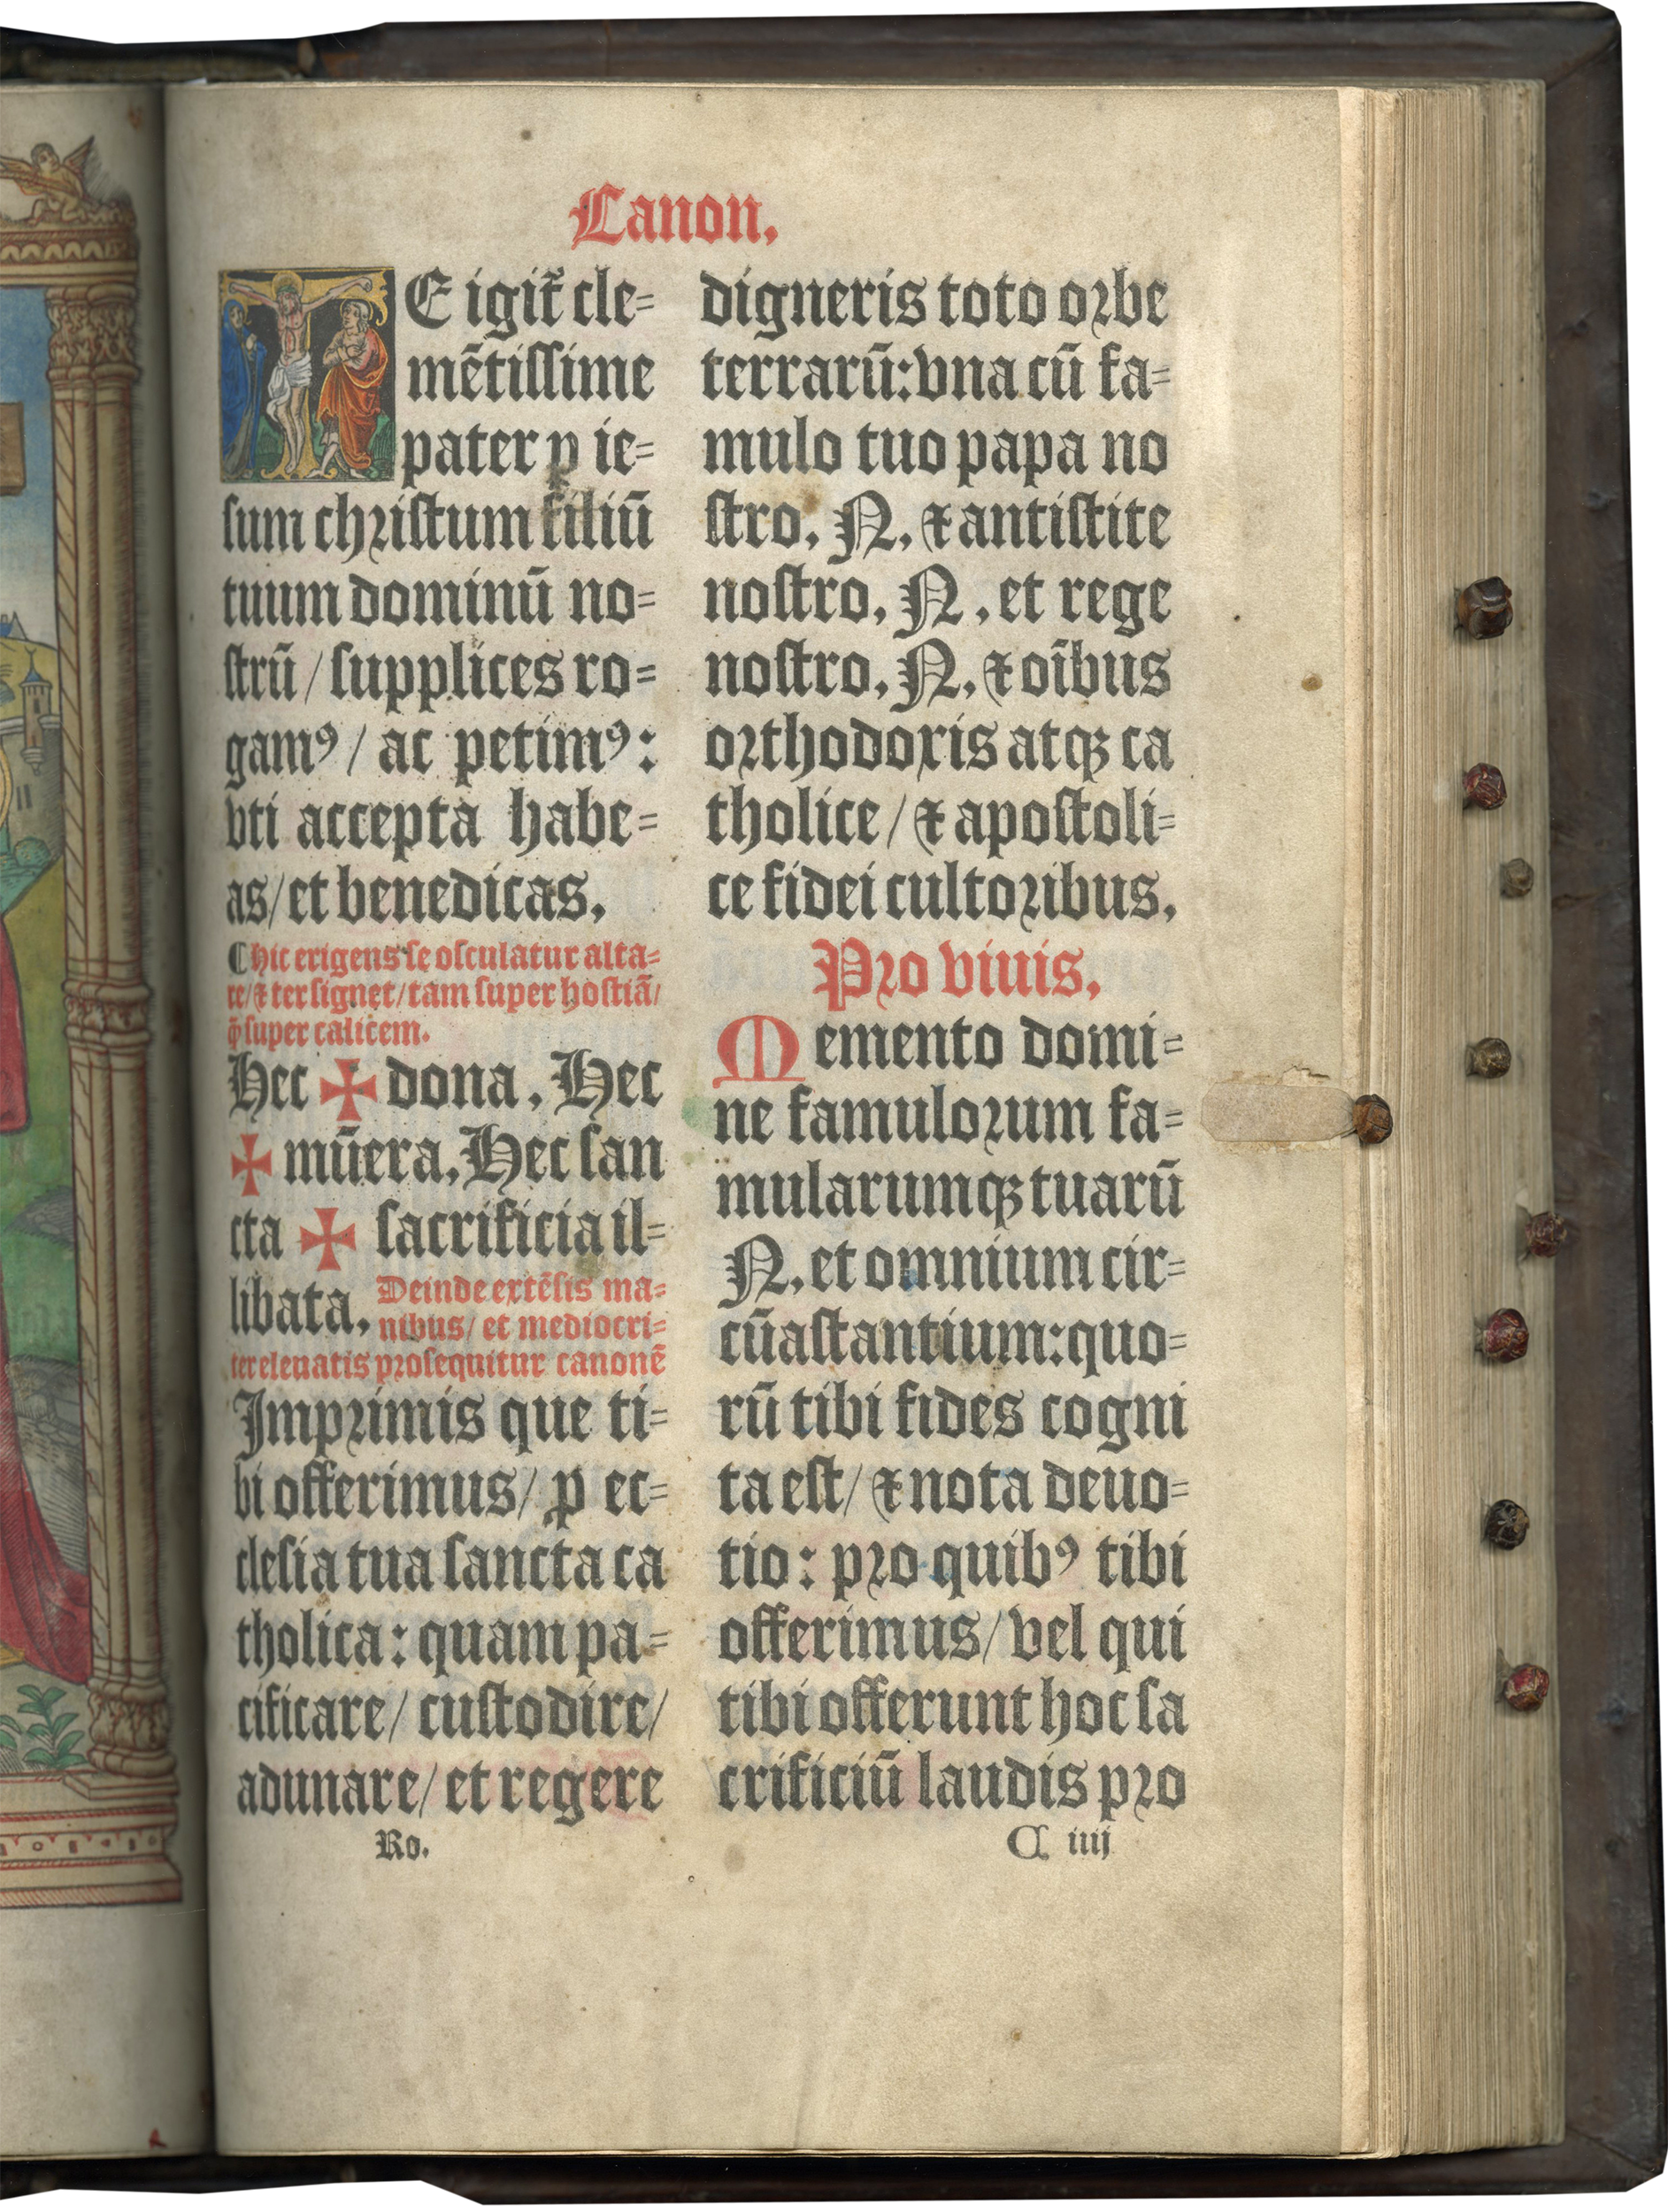 Canon.
TE igit᷑ cle=
mētissime
pater p̲ ie=
sum christum filiū
tuum dominū no=
strū / supplices ro=
gamꝰ / ac petimꝰ:
vti accepta habe=
as / et benedicas.
¶ hic erigens se osculatur alta=
re / ⁊ ter signet / tam super hostiā /
q̄ super calicem.
Hec ✠ dona. Hec
✠ mūera. Hec san
cta ✠ sacrificia il=
libata. Deinde extēsis ma=
nibus / et mediocri=
ter eleuatis prosequitur canonē
Imprimis que ti=
bi offerimus / ꝓ ec=
clesia tua sancta ca
tholica: quam pa=
cificare / custodire /
adunare / et regere
Ro.
digneris toto orbe
terrarū: vna cū fa=
mulo tuo papa no
stro. N. ⁊ antistite
nostro. N. et rege
nostro. N. ⁊ oībus
orthodoxis atqꝫ ca
tholice / ⁊ apostoli=
ce fidei cultoribus.
Pro viuis.
Memento domi=
ne famulorum fa=
mularumqꝫ tuarū
N. et omnium cir=
cūastantium: quo=
rū tibi fides cogni
ta est / ⁊ nota deuo=
tio: pro quibꝰ tibi
offerimus / vel qui
tibi offerunt hoc sa
crificiū laudis pro
C iiij